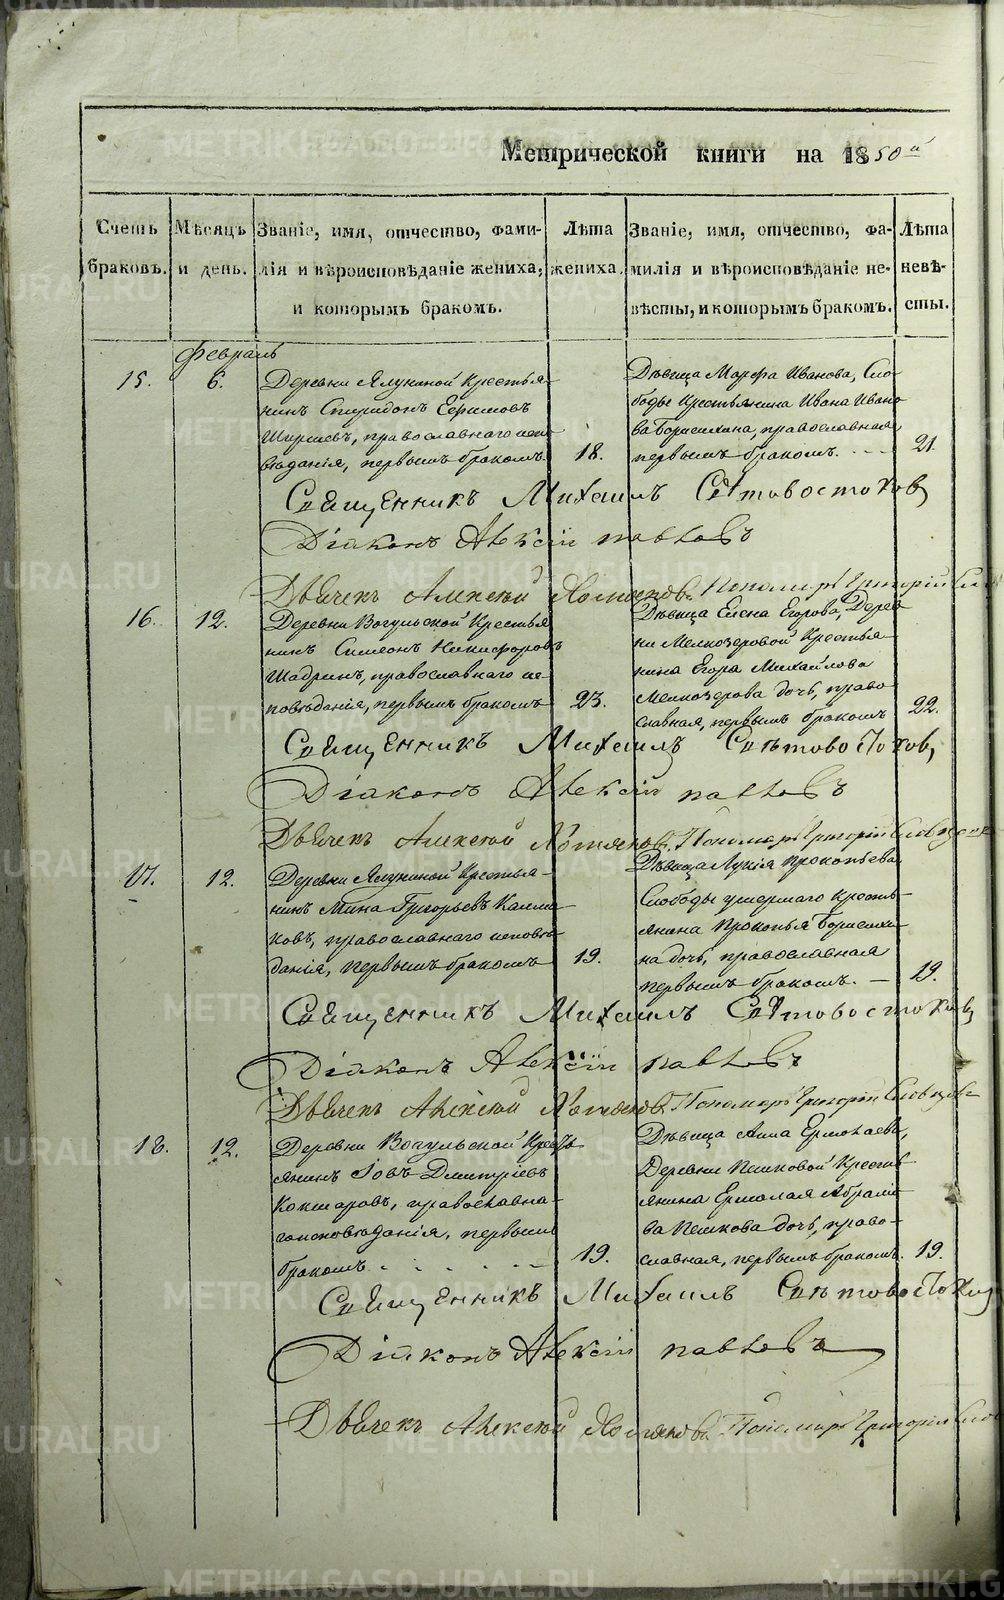 Метрической книги на 1850й
Счетъ браковъ.
Мѣсяцъ и день.
Званіе, имя, отчество, фами-
лія и вѣроисповѣданіе жениха,
и которымъ бракомъ.
Лѣта жениха.
Званіе, имя, отчество, фа-
милія и вѣроисповѣданіе не-
вѣсты, и которымъ бракомъ.
Лѣта
невѣ-
сты.
Февраль
15.
6.
Деревни Ялуниной Крестья-
нинъ Спиридонъ Ефимовъ
православнаго испо-
вѣданія, первымъ бракомъ.
18.
Дѣвица Марфа Иванова, Сло-
боды Крестьянина Ивана Ивано
ва православная
первымъ бракомъ.
21.
Священникъ Михаилъ Свѣтовостоковъ
Діаконъ Алексій Павловъ
Дьячекъ Алексѣй Хотяновъ. Пономарь Григорій
16.
12.
Деревни Вогульской Крестья
нинъ Симеонъ Никифоровъ
Шадринъ, православнаго ис-
повѣданія, первымъ бракомъ
23.
Дѣвица Елена Егорова, Дерев
ни Мелкозеровой Крестья-
нина Егора Михайлова
Мелкозерова дочь, право
славная, первымъ бракомъ
22.
Священникъ Михаилъ Свѣтовостоковъ
Діаконъ Алексій Павловъ
Дьячекъ Алексѣй Хотяновъ. Пономарь Григорій
17.
12.
Деревни Ялуниной Крестья-
нинъ Мина Григорьевъ Калма-
ковъ, православнаго исповѣ
данія, первымъ бракомъ
19.
Дѣвица Лукія Прокопьева
Слободы умершаго Кресть-
янина Прокопья
на дочь, православная
первымъ бракомъ. —
19.
Священникъ Михаилъ Свѣтовостоковъ
Діаконъ Алексій Павловъ
Дьячекъ Алексѣй Хотяновъ. Пономарь Григорій
18.
12.
Деревни Вогульской Кресть
янинъ Іовъ Дмитріевъ
Кокшаровъ, православна-
го исповѣданія, первымъ
бракомъ
19.
Дѣвица Анна Ермолаева,
Деревни Пешковой Кресть
янина Ермолая Абрамо
ва Пешкова дочь, право-
славная, первымъ бракомъ.
19.
Священникъ Михаилъ Свѣтовостоковъ
Діаконъ Алексій Павловъ
Дьячекъ Алексѣй Хотяновъ. Пономарь Григорій
METRIKI.GASO-URAL.RU